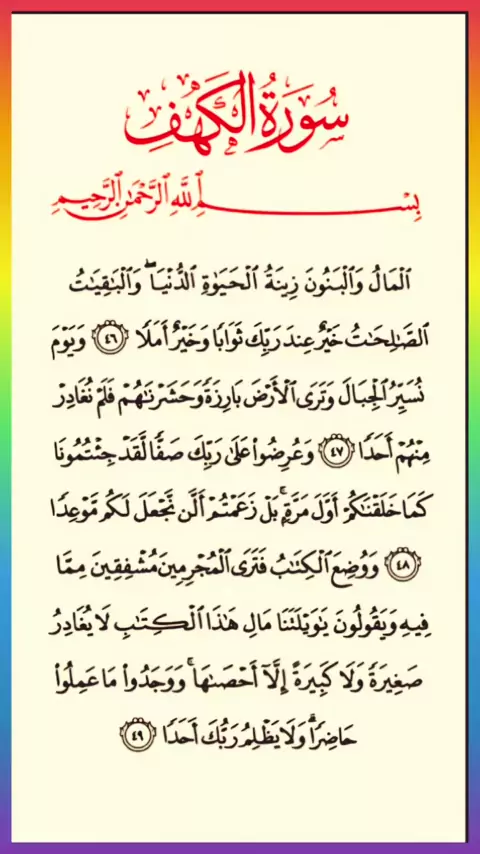 سُورَةُ الْكَهْفِ
بِسْمِ اللَّهِ الرَّحْمَٰنِ الرَّحِيمِ
الْمَالُ وَالْبَنُونَ زِينَةُ الْحَيَوٰةِ الدُّنْيَاۖ وَالْبَٰقِيَٰتُ
الصَّٰلِحَٰتُ خَيْرٌ عِندَ رَبِّكَ ثَوَابًا وَخَيْرٌ أَمَلًا ٤٦ وَيَوْمَ
نُسَيِّرُ الْجِبَالَ وَتَرَى الْأَرْضَ بَارِزَةً وَحَشَرْنَٰهُمْ فَلَمْ نُغَادِرْ
مِنْهُمْ أَحَدًا ٤٧ وَعُرِضُوا۟ عَلَىٰ رَبِّكَ صَفًّا لَّقَدْ جِئْتُمُونَا
كَمَا خَلَقْنَٰكُمْ أَوَّلَ مَرَّةٍۭۚ بَلْ زَعَمْتُمْ أَلَّن نَّجْعَلَ لَكُم مَّوْعِدًا
٤٨ وَوُضِعَ الْكِتَٰبُ فَتَرَى الْمُجْرِمِينَ مُشْفِقِينَ مِمَّا
فِيهِ وَيَقُولُونَ يَٰوَيْلَتَنَا مَالِ هَٰذَا الْكِتَٰبِ لَا يُغَادِرُ
صَغِيرَةً وَلَا كَبِيرَةً إِلَّآ أَحْصَىٰهَاۚ وَوَجَدُوا۟ مَا عَمِلُوا۟
حَاضِرًاۗ وَلَا يَظْلِمُ رَبُّكَ أَحَدًا ٤٩